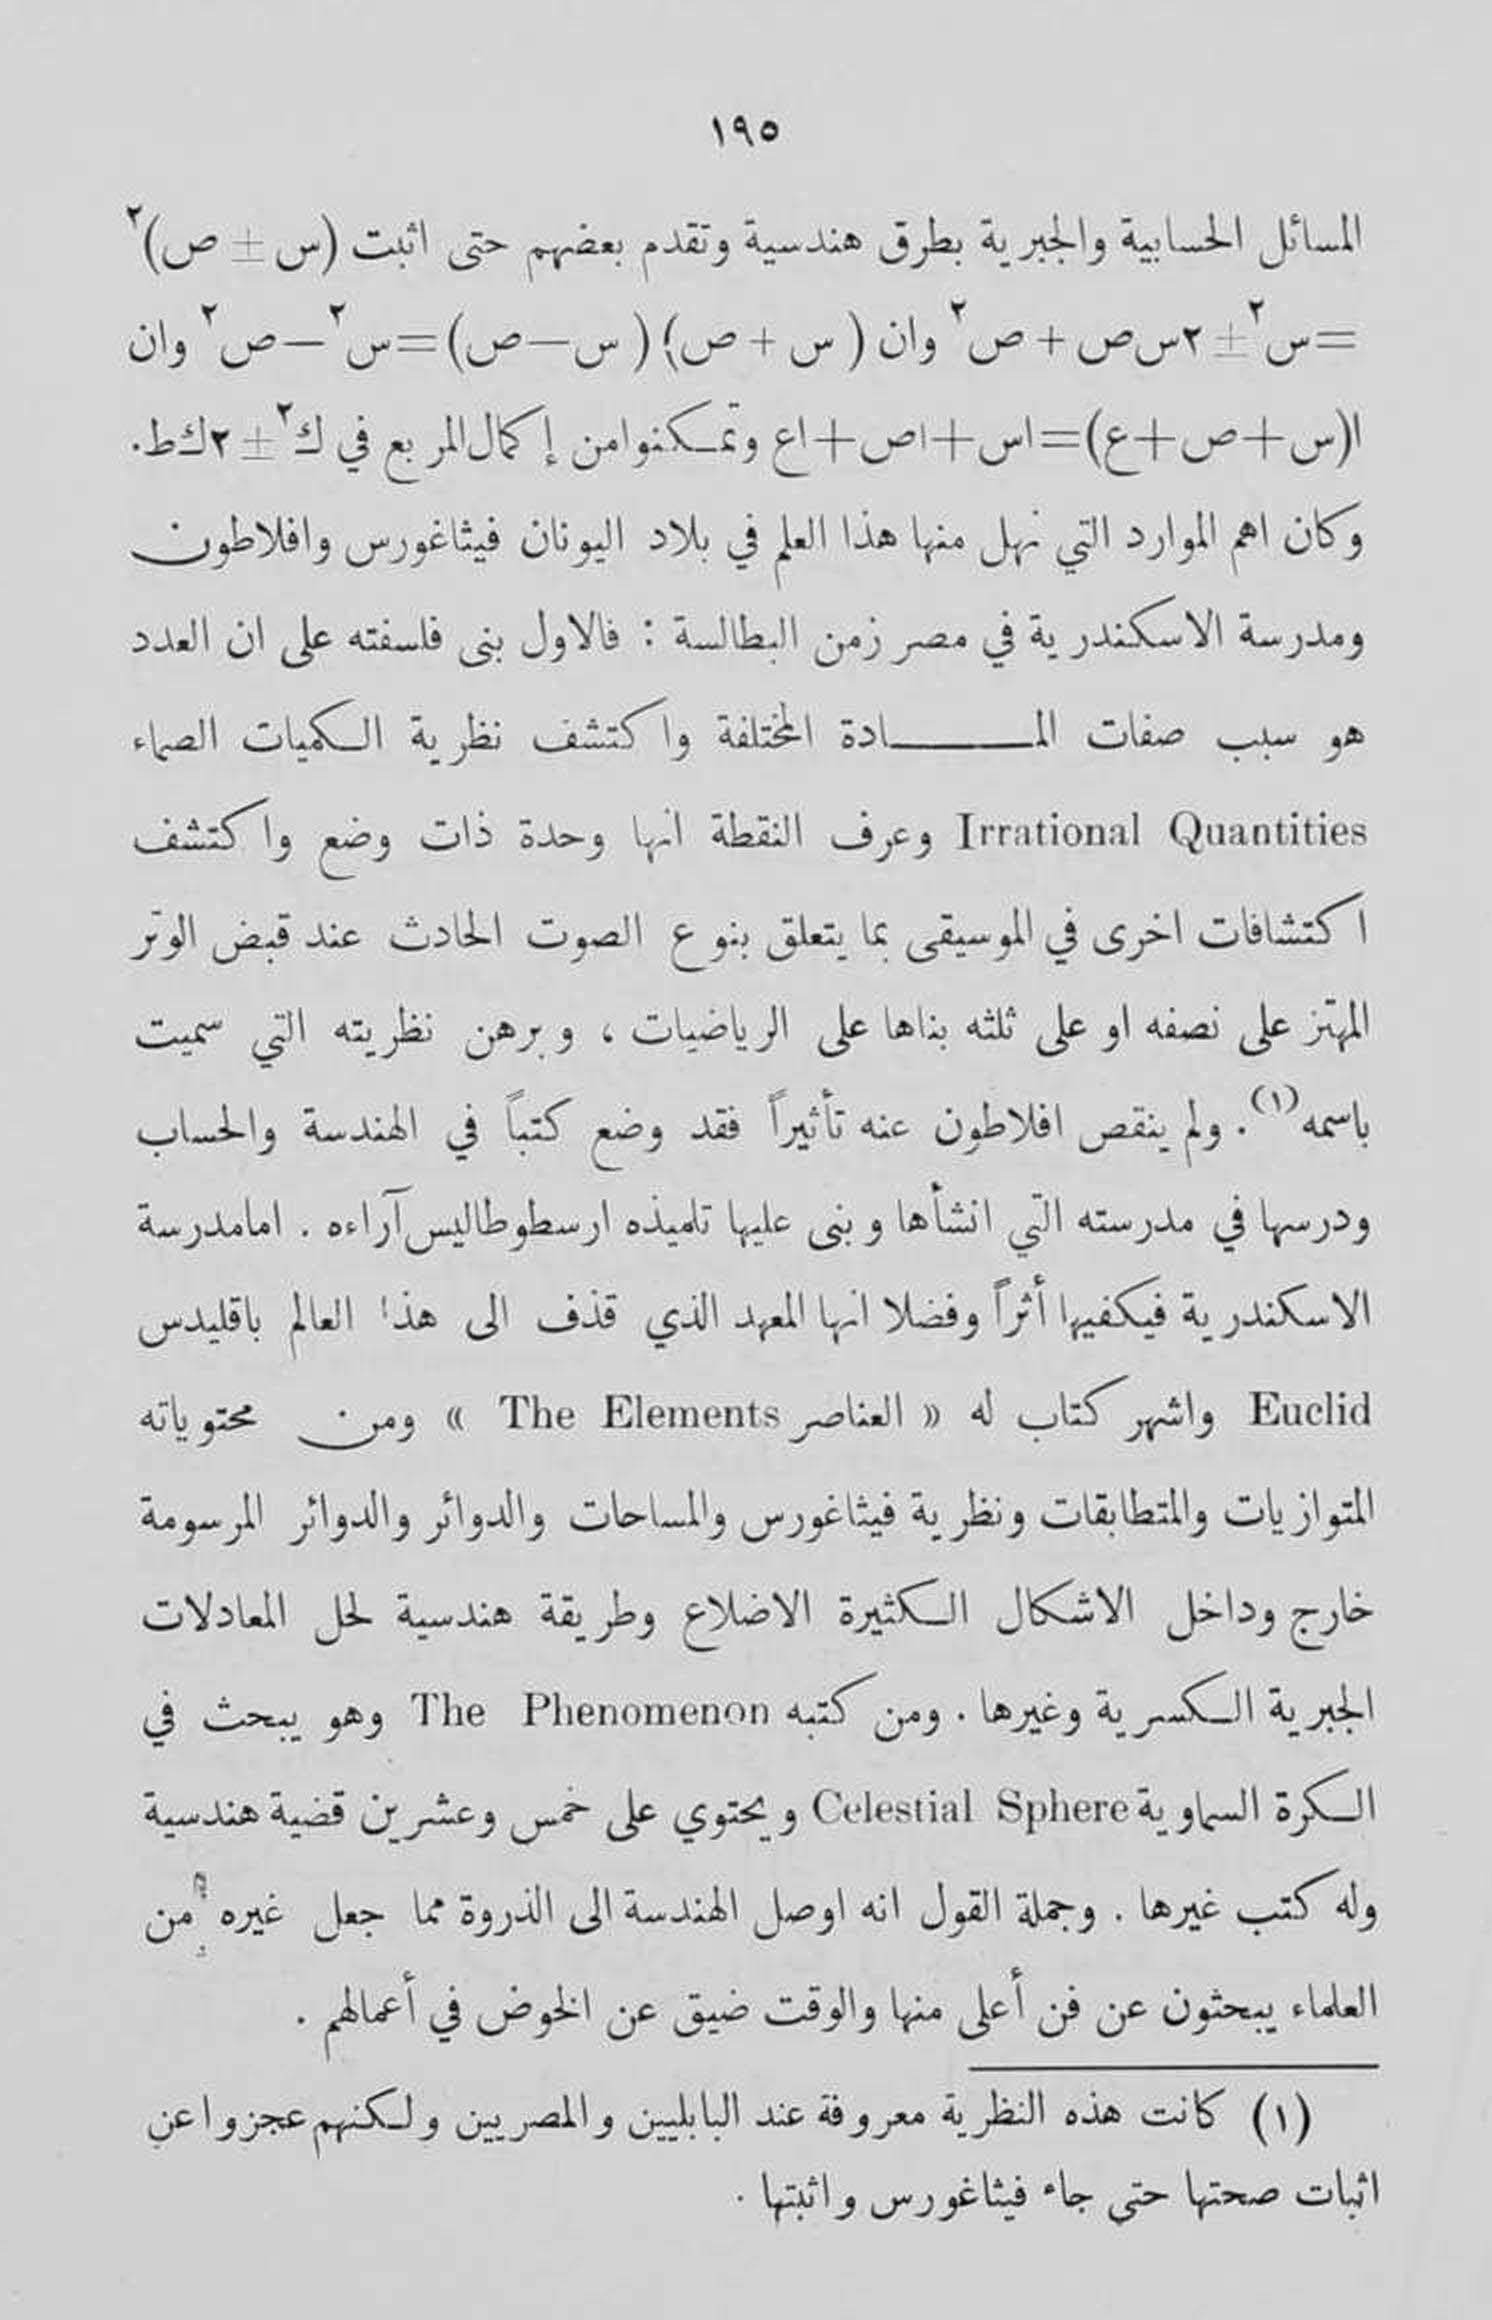 ١٩٥
المسائل الحسابية والجبرية بطرق هندسية وتقدم بعضهم حتى اثبت (س ± ص)²
=س²± ٢س ص + ص² وان ( س + ص) ( س—ص)=س²—ص² وان
ا(س+ص+ع)=اس+اص+اع وتمكنوا من إكمال المربع في ك²± ٢ك ط.
وكان اهم الموارد التي نهل منها هذا العلم في بلاد اليونان فيثاغورس وافلاطون
ومدرسة الاسكندرية في مصر زمن البطالسة : فالاول بنى فلسفته على ان العدد
هو سبب صفات المـــــادة المختلفة واكتشف نظرية الكميات الصماء
Irrational Quantities وعرف النقطة انها وحدة ذات وضع واكتشف
اكتشافات اخرى في الموسيقى بما يتعلق بنوع الصوت الحادث عند قبض الوتر
المهتز على نصفه او على ثلثه بناها على الرياضيات ، وبرهن نظريته التي سميت
باسمه(١). ولم ينقص افلاطون عنه تأثيراً فقد وضع كتباً في الهندسة والحساب
ودرسها في مدرسته التي انشأها وبنى عليها تلميذه ارسطوطاليس آراءه . اما مدرسة
الاسكندرية فيكفيها أثراً وفضلا انها المعهد الذي قذف الى هذا العالم باقليدس
Euclid واشهر كتاب له « العناصر The Elements » ومن محتوياته
المتوازيات والمتطابقات ونظرية فيثاغورس والمساحات والدوائر والدوائر المرسومة
خارج وداخل الاشكال الكثيرة الاضلاع وطريقة هندسية لحل المعادلات
الجبرية الكسرية وغيرها . ومن كتبه The Phenomenon وهو يبحث في
الكرة السماوية Celestial Sphere ويحتوي على خمس وعشرين قضية هندسية
وله كتب غيرها . وجملة القول انه اوصل الهندسة الى الذروة مما جعل غيره من
العلماء يبحثون عن فن أعلى منها والوقت ضيق عن الخوض في أعمالهم .
(١) كانت هذه النظرية معروفة عند البابليين والمصريين ولكنهم عجزوا عن
اثبات صحتها حتى جاء فيثاغورس واثبتها .